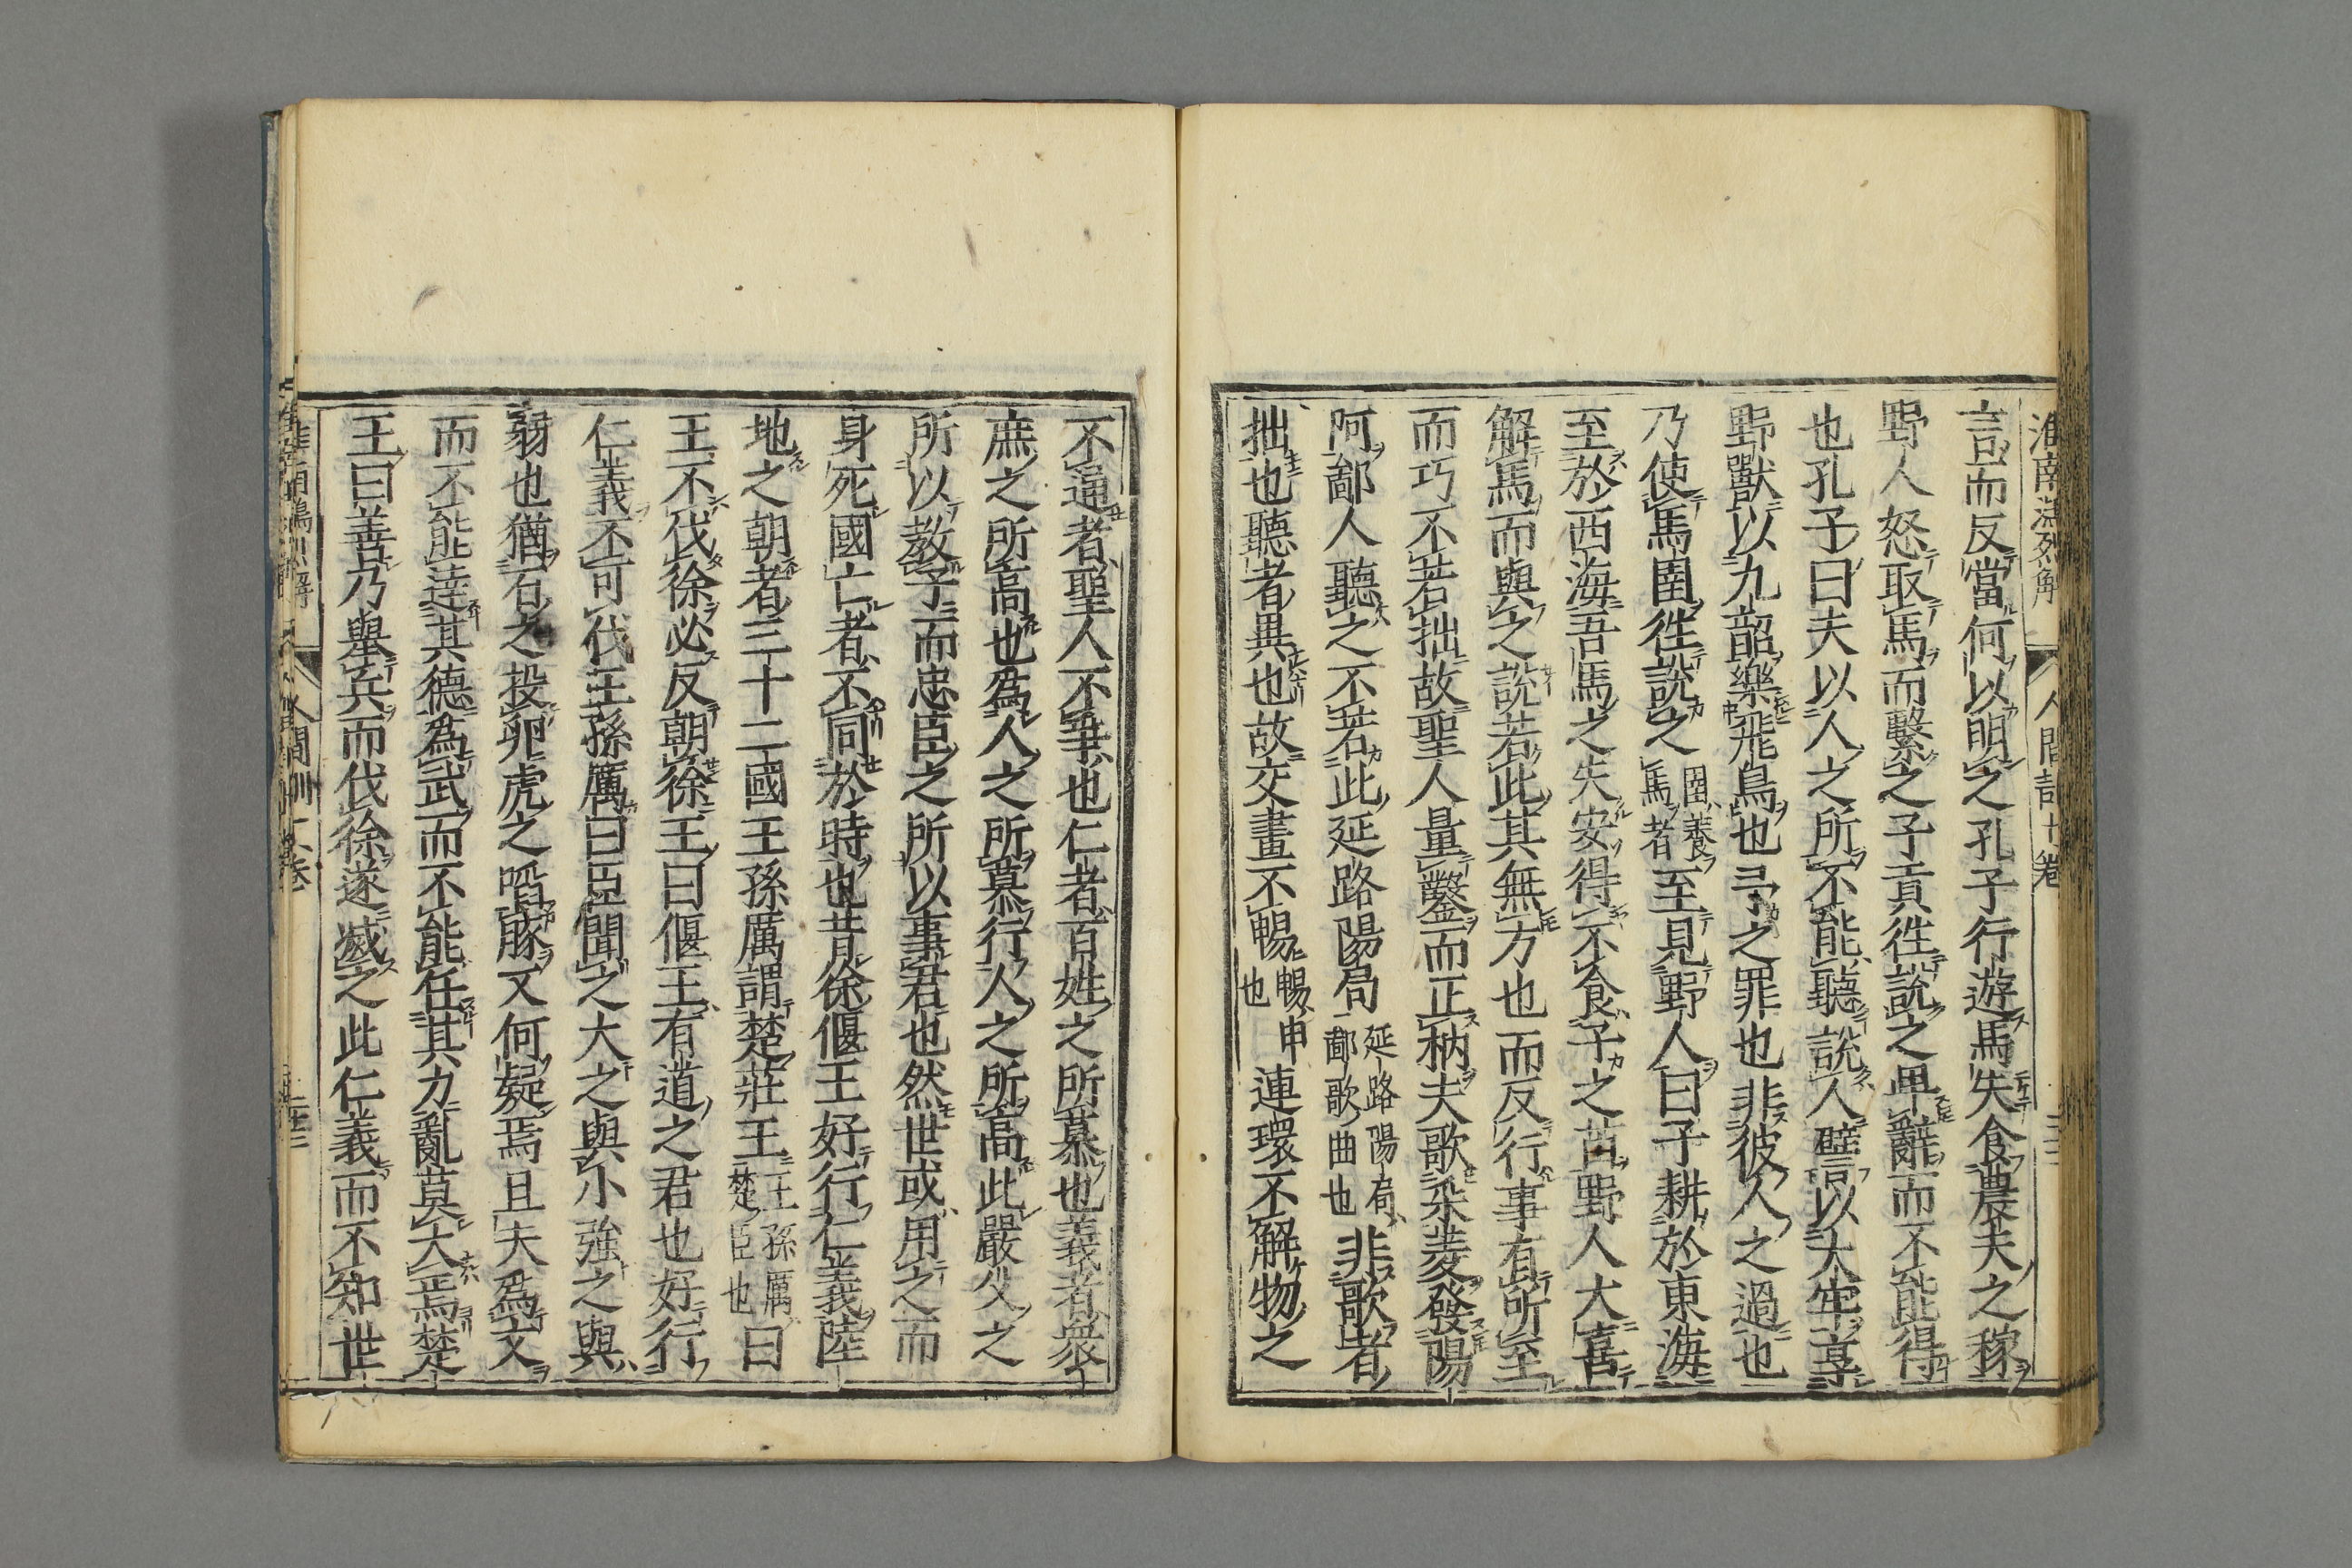 言而反當何以明之孔子行遊馬失食農夫之稼
野人怒取馬而繫之子貢往說之卑辭而不能得
也孔子曰夫以人之所不能聽說人譬以大牢享
野獸以九韶樂飛鳥也予之罪也非彼人之過也
乃使馬圉往說之圉養馬者至見野人曰子耕於東海
至於西海吾馬之失安得不食子之苗野人大喜
解馬而與之說若此其無方也而反行事有所至
而巧不若拙故聖人量鑿而正枘夫歌采菱發陽
阿鄙人聽之不若此延路陽局延路陽局鄙歌曲也非歌者
拙也聽者異也故交畫不暢暢申也連環不解物之
不通者聖人不爭也仁者百姓之所慕也義者衆
庶之所高也為人之所慕行人之所高此嚴父之
所以教子而忠臣之所以事君也然世或用之而
身死國亡者不同於時也昔徐偃王好行仁義陸
地之朝者三十二國王孫厲謂楚莊王王孫厲楚臣也曰
王不伐徐必反朝徐王曰偃王有道之君也好行
仁義不可伐王孫厲曰臣聞之大之與小強之與
弱也猶石之投卵虎之啗豚又何疑焉且夫為文
而不能達其德為武而不能任其力亂莫大焉楚
王曰善乃舉兵而伐徐遂滅之此仁義而不知世